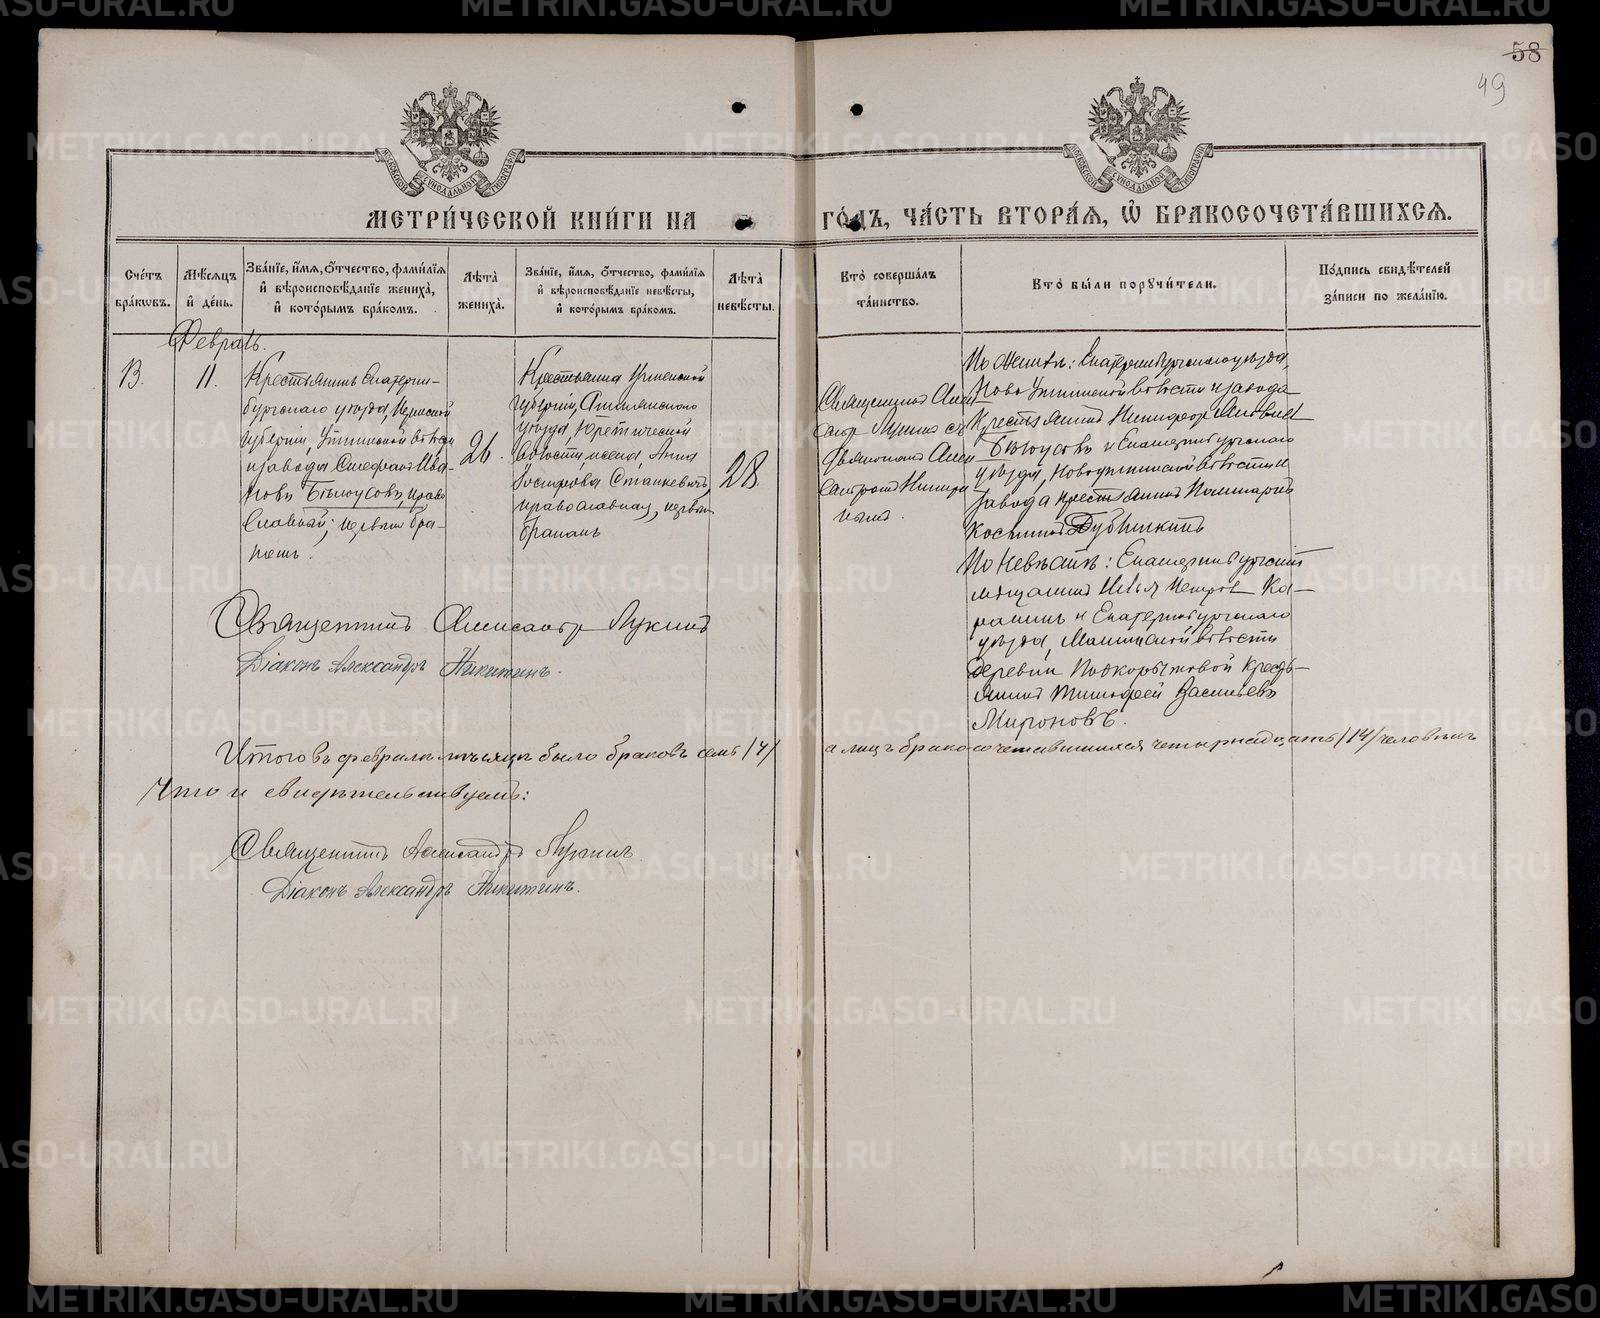 58
49
МОСКОВСКОЙ СѴНОДАЛЬНОЙ ТИПОГРАФІИ
МОСКОВСКОЙ СѴНОДАЛЬНОЙ ТИПОГРАФІИ
МЕТРИ́ЧЕСКОЙ КНИ́ГИ НА ГО́ДЪ, ЧА́СТЬ ВТОРА́Я, Ѡ҆ БРАКОСОЧЕТА́ВШИХСЯ.
Сче́тъ
бра́кѡвъ.
Мѣ́сяцъ
и҆ де́нь.
Зва́нїе, и҆́мя, ѻ҆́тчество, фами́лїя
и҆ вѣроисповѣ́данїе жениха̀,
и҆ кото́рымъ бра́комъ.
Лѣ́та
жениха̀.
Зва́нїе, и҆́мя, ѻ҆́тчество, фами́лїя
и҆ вѣроисповѣ́данїе невѣ́сты,
и҆ кото́рымъ бра́комъ.
Лѣ́та
невѣ́сты.
Кто̀ соверша́лъ
та́инство.
Кто̀ бы́ли поручи́тели.
По́дпись свидѣ́телей
за́писи по жела́нїю.
Февраль.
13.
11.
Крестьянинъ Екатерин-
бургскаго уѣзда, Пермской
губерніи, Уткинской волости
и завода Стефанъ Ива-
новъ Бѣлоусовъ, право
славный; первымъ бра-
комъ.
26.
Крестьянка
губерніи,
уѣзда, Критической
волости, Анна
Станкевичъ,
православная, первым
бракомъ
28.
Священникъ Алек
сандръ Лукинъ съ
Діакономъ Алек
сандромъ Никити
нымъ.
По женихѣ: Екатеринбургскаго уѣзда,
Ново Уткинской волости и завода
Крестьянинъ Никифоръ Яковлевъ
Бѣлоусовъ и Екатеринбургскаго
уѣзда, Новоуткинской волости и
завода крестьянинъ
Дубинкинъ
По невѣстѣ: Екатеринбургскій
мѣщанинъ Илья Петровъ Ка-
и Екатеринбургскаго
уѣзда, волости
деревни Подкорытовой Кресть-
янинъ Тимофей Васильевъ
Мироновъ.
Священникъ Александръ Лукинъ
Діаконъ Александръ Никитинъ.
Итого въ февралѣ мѣсяцѣ было браковъ семь /7/ а лицъ бракосочетавшихся четырнадцать /14/ человѣкъ
Что и свидѣтельствуемъ:
Священникъ Александръ Лукинъ.
Діаконъ Александръ Никитинъ.
METRIKI.GASO-URAL.RU